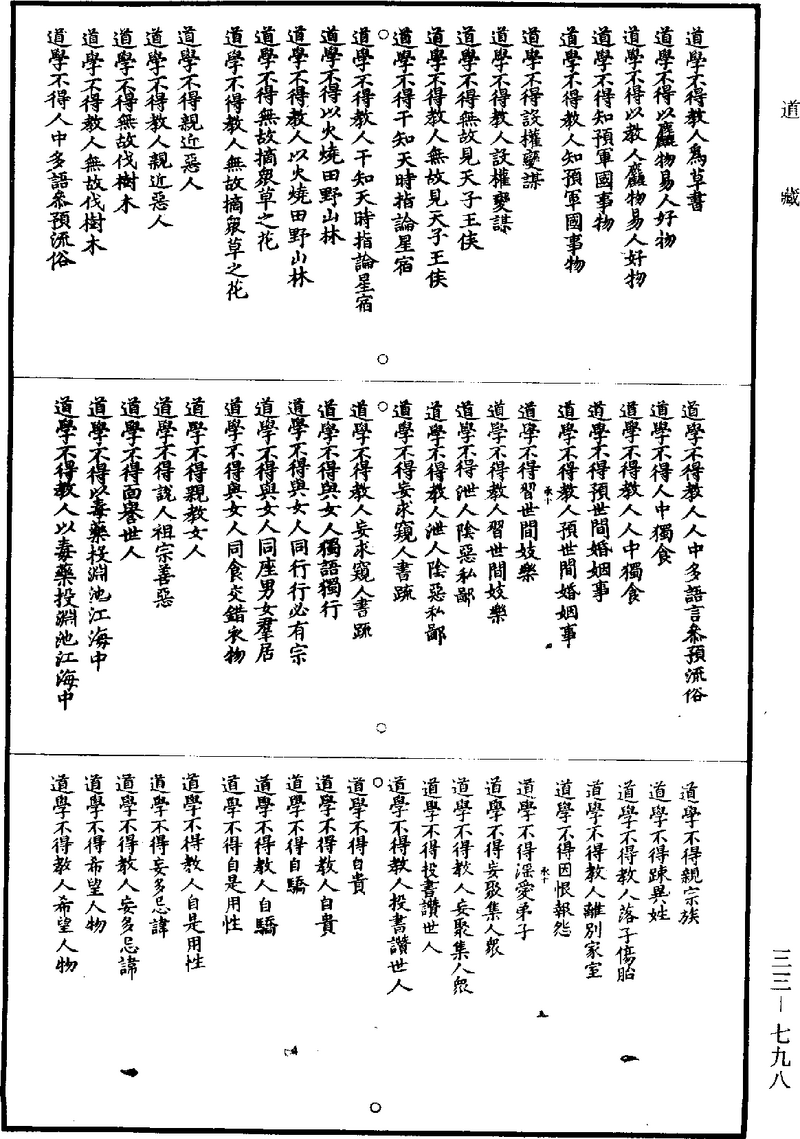 道藏
道學不得教人爲草書
道學不得以麤物易人好物
道學不得以教人麤物易人好物
道學不得知預軍國事物
道學不得教人知預軍國事物
道學不得設權變謀
道學不得教人設權變謀
道學不得無故見天子王侯
道學不得教人無故見天子王侯
道學不得干知天時指論星宿
道學不得教人干知天時指論星宿
道學不得以火燒田野山林
道學不得教人以火燒田野山林
道學不得無故摘衆草之花
道學不得教人無故摘衆草之花
道學不得親近惡人
道學不得教人親近惡人
道學不得無故伐樹木
道學不得教人無故伐樹木
道學不得人中多語參預流俗
道學不得教人人中多語言參預流俗
道學不得人中獨食
道學不得教人人中獨食
道學不得預世間婚姻事
道學不得教人預世間婚姻事
道學不得習世間妓樂
道學不得教人習世間妓樂
道學不得泄人陰惡私鄙
道學不得教人泄人陰惡私鄙
道學不得妄求窺人書疏
道學不得教人妄求窺人書疏
道學不得與女人獨語獨行
道學不得與女人同行行必有宗
道學不得與女人同座男女羣居
道學不得與女人同食交錯衣物
道學不得親教女人
道學不得說人祖宗善惡
道學不得面譽世人
道學不得以毒藥投淵池江海中
道學不得教人以毒藥投淵池江海中
道學不得親宗族
道學不得踈異姓
道學不得教人落子傷胎
道學不得教人離別家室
道學不得因恨報怨
道學不得淫愛弟子
道學不得妄聚集人衆
道學不得教人妄聚集人衆
道學不得投書讚世人
道學不得教人投書讚世人
道學不得自貴
道學不得教人自貴
道學不得自驕
道學不得教人自驕
道學不得自是用性
道學不得教人自是用性
道學不得妄多忌諱
道學不得教人妄多忌諱
道學不得希望人物
道學不得教人希望人物
三三—七九八